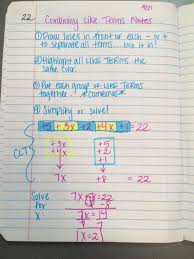 22
9/21
Combining Like Terms Notes
① Draw lines in front of each - or +
to separate all terms... box it in!
② Highlight all LIKE TERMS the
same color.
③ Put each group of LIKE TERMS
together. *combine*
④ Simplify or solve!
+5 +3x +2 +4x +1 = 22
CLT
+3x +5
+4x +2
+1
7x +8 = 22
Solve 7x +8 = 22
for -8 -8
x 7x = 14
7 7
x = 2